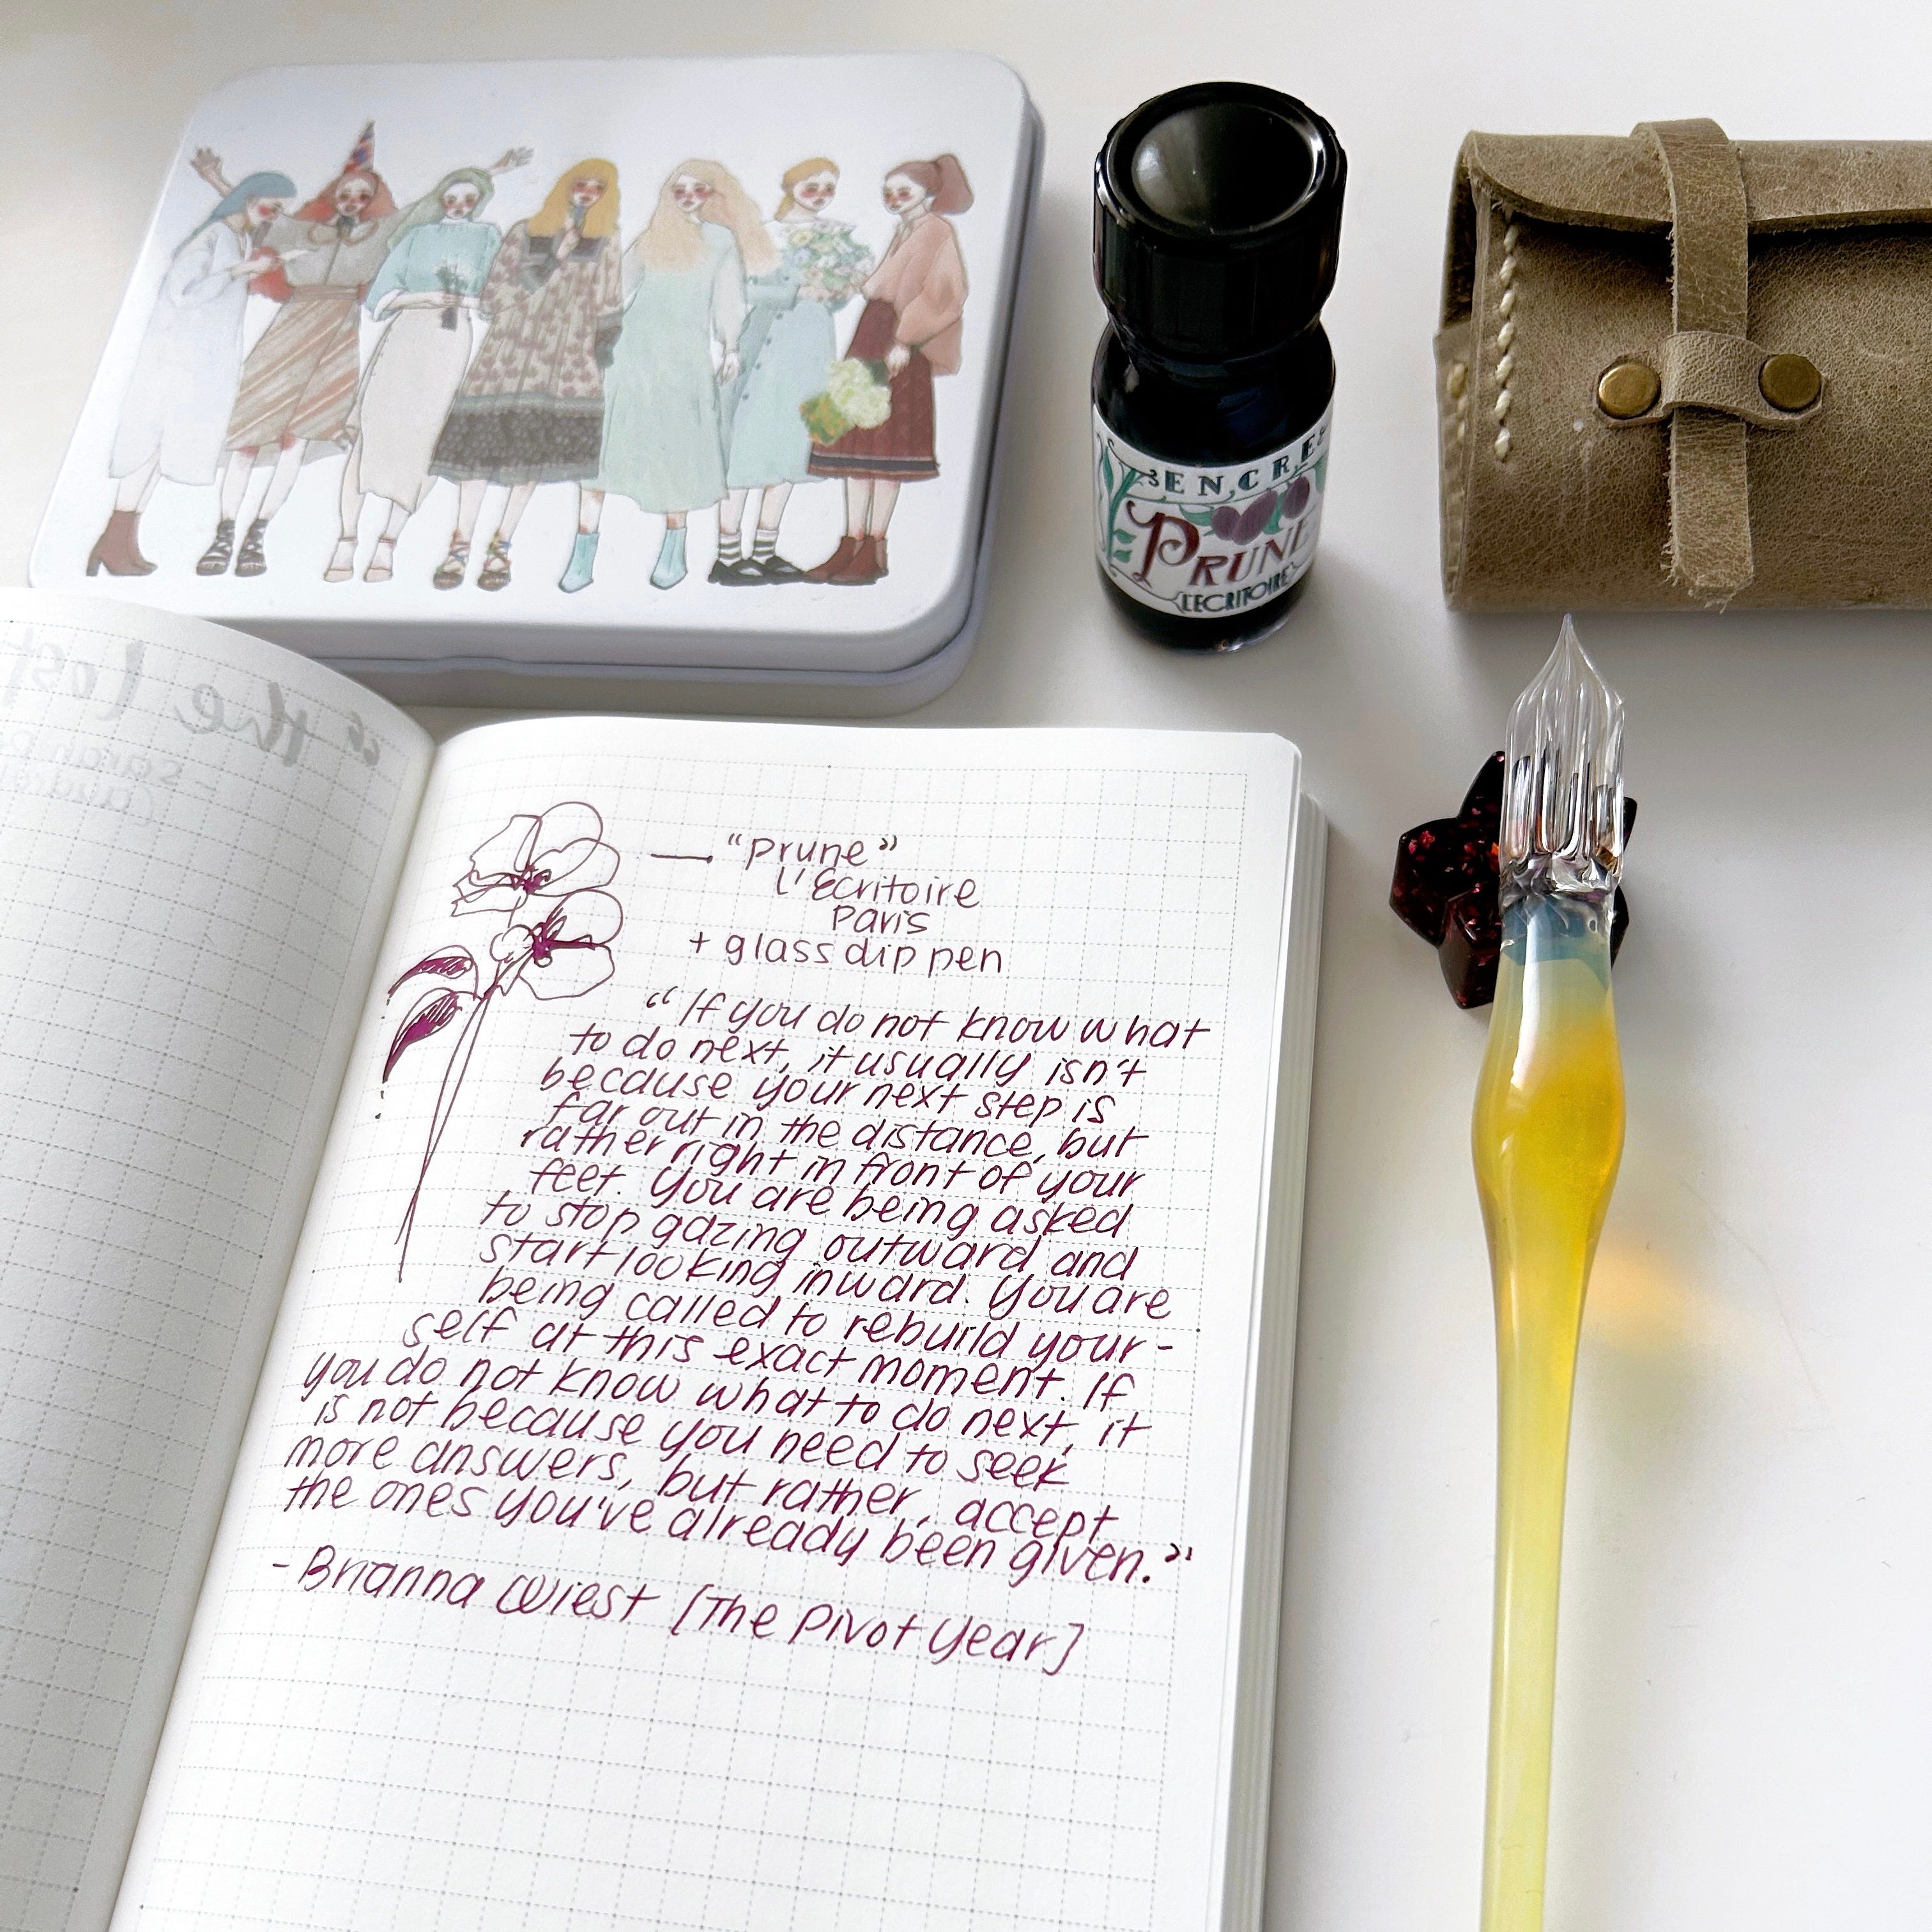 ENCRE
PRUNE
L'ECRITOIRE
" the lost
"Prune"
L'Ecritoire
Paris
+ glass dip pen
"If you do not know what
to do next, it usually isn't
because your next step is
far out in the distance, but
rather right in front of your
feet. You are being asked
to stop gazing outward and
start looking inward. You are
being called to rebuild your-
self at this exact moment. If
you do not know what to do next, it
is not because you need to seek
more answers, but rather, accept
the ones you've already been given."
- Brianna Wiest [The Pivot Year]